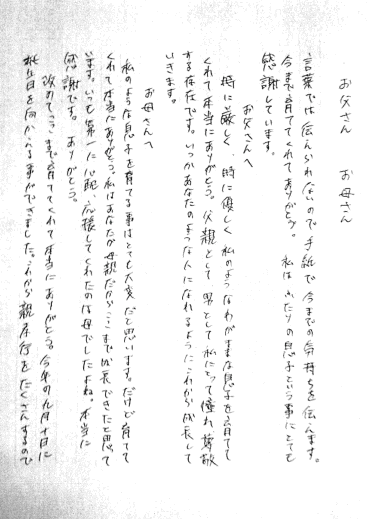 お父さん　お母さん
言葉では伝えられないので手紙で今までの気持ちを伝えます。
今まで育ててくれてありがとう。私はふたりの息子という事にとても
感謝しています。
お父さんへ
時に厳しく、時に優しく私のようなわがままな息子を育てて
くれて本当にありがとう。父親として、男として私にとって憧れ、尊敬
する存在です。いつかあなたのような人になれるようにこれから成長して
いきます。
お母さんへ
私のような息子を育てる事はとても大変だと思います。だけど育てて
くれて本当にありがとう。私はあなたが母親だからここまで成長できたと思って
います。いつも第一に心配、応援してくれたのは母でしたよね。本当に
感謝です。ありがとう。
改めてここまで育ててくれて本当にありがとう。今年の九月十日に
誕生日を向かえる事ができました。これから親孝行をたくさんするので